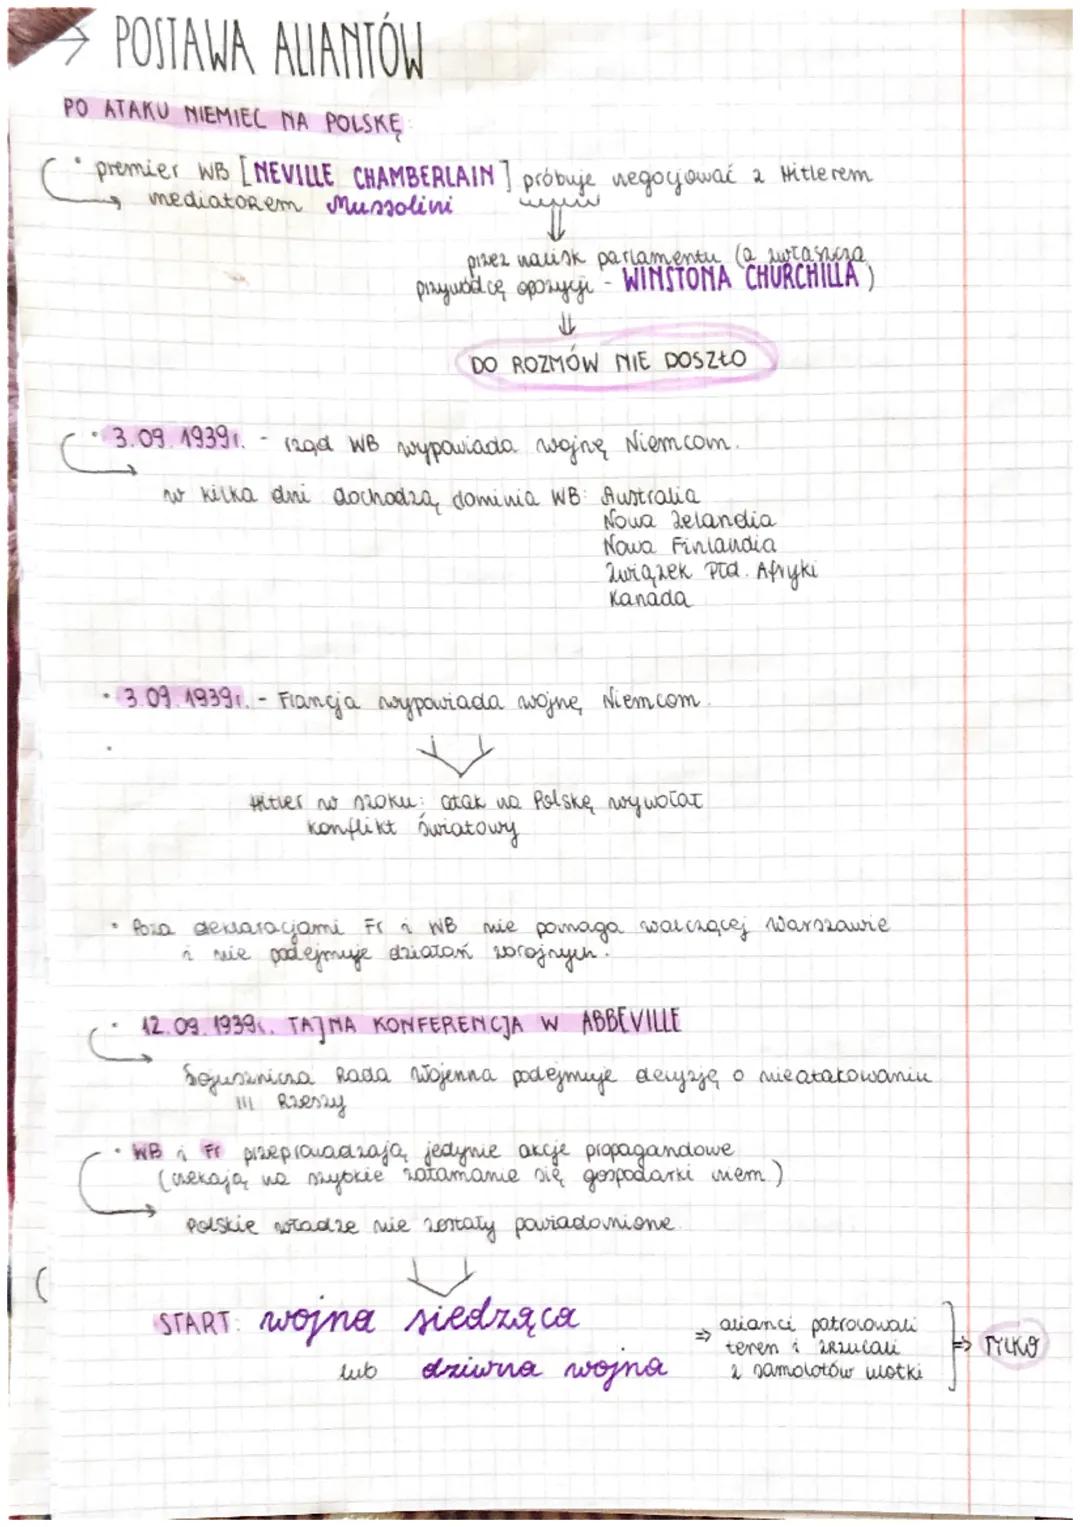 → POSTAWA ALIANTÓW
PO ATAKU NIEMIEC NA POLSKĘ:
• premier WB [NEVILLE CHAMBERLAIN] próbuje negocjować z Hitlerem
mediatorem Mussolini
⇓
przez nacisk parlamentu (a zwłaszcza
przywódcę opozycji - WINSTONA CHURCHILLA)
⇓
DO ROZMÓW NIE DOSZŁO
• 3.09.1939r. - rząd WB wypowiada wojnę Niemcom.
w kilka dni dochodzą dominia WB: Australia
Nowa Zelandia
Nowa Finlandia
Związek Płd. Afryki
Kanada
• 3.09.1939r. - Francja wypowiada wojnę Niemcom.
Hitler w szoku: atak na Polskę wywołał
konflikt światowy
• Poza deklaracjami Fr i WB nie pomaga walczącej Warszawie
i nie podejmuje działań zbrojnych.
• 12.09.1939r. TAJNA KONFERENCJA W ABBEVILLE
Sojusznicza Rada Wojenna podejmuje decyzję o nieatakowaniu
III Rzeszy
• WB i Fr przeprowadzają jedynie akcje propagandowe
(czekają na szybkie załamanie się gospodarki niem.)
Polskie władze nie zostały powiadomione.
START: wojna siedząca
lub dziwna wojna
⇒ alianci patrolowali
teren i zrzucali
z samolotów ulotki
⇒ TYLKO